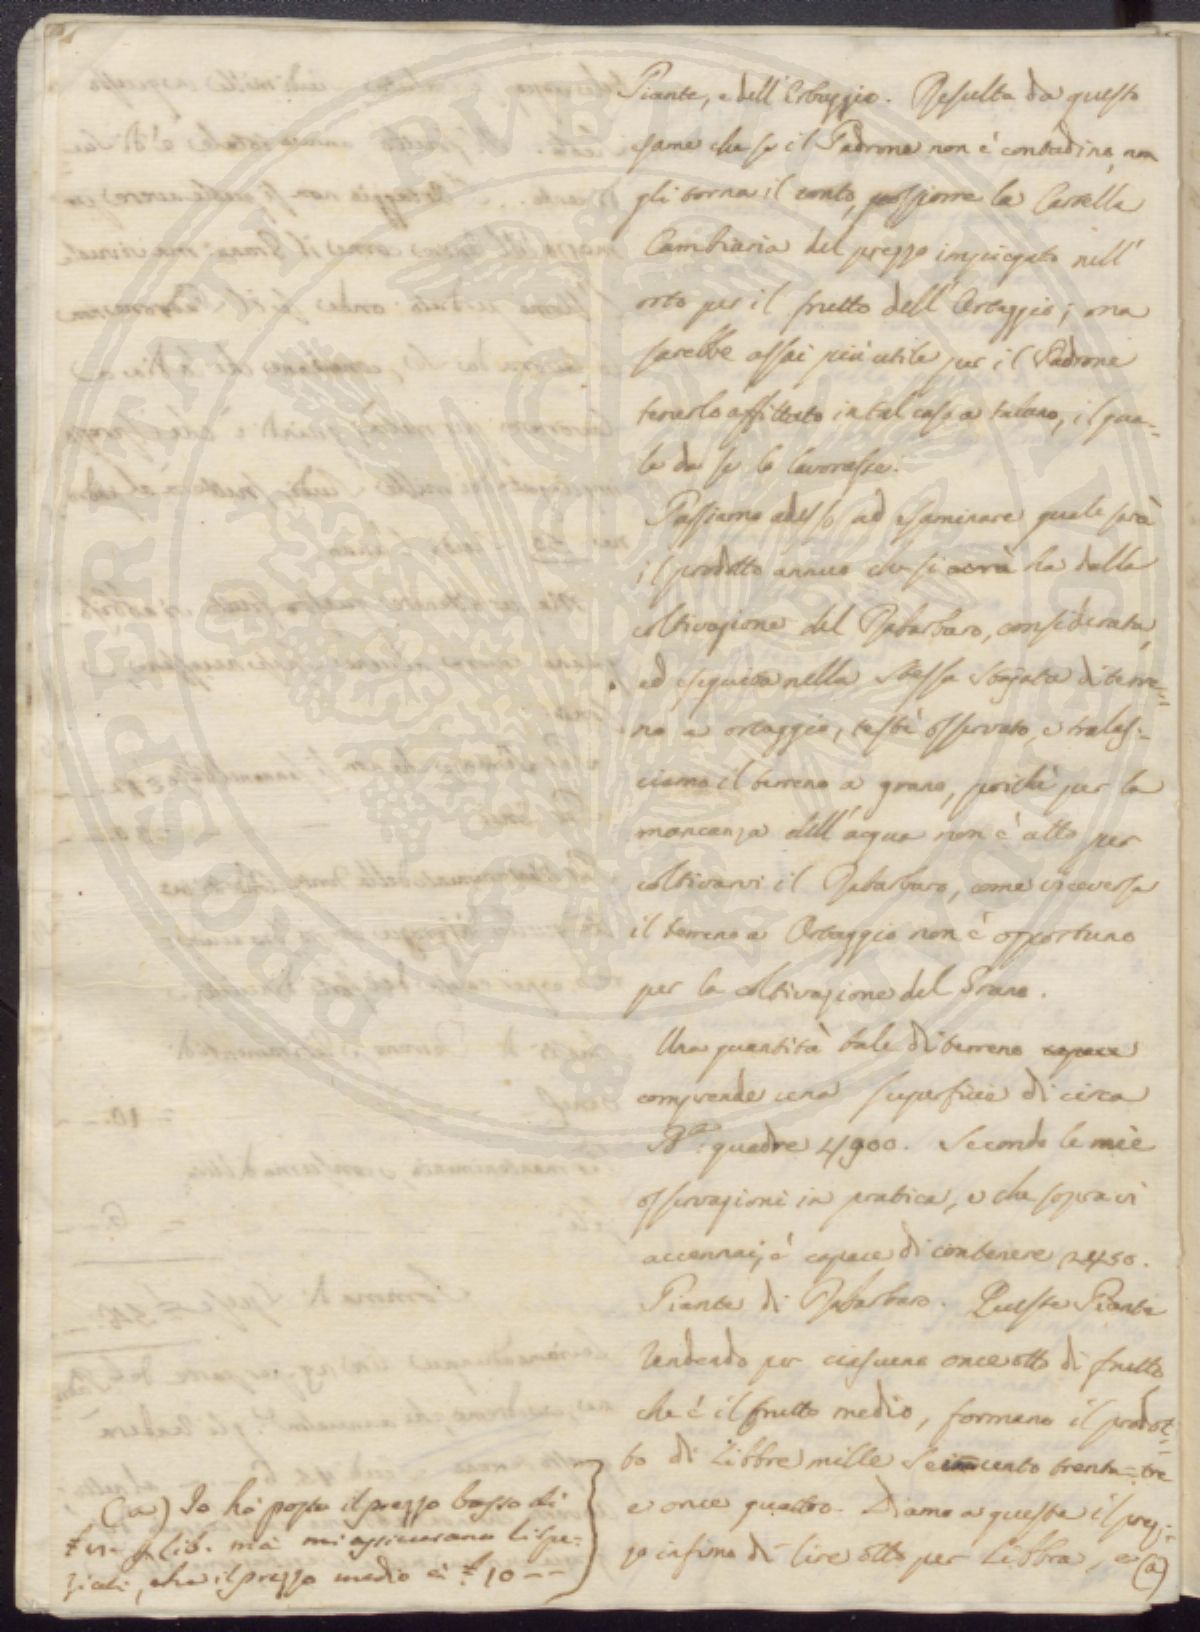 Piante, e dell'Erbaggio. Resulta da questo
esame che se il Padrone non è contadino, non
gli torna il conto, posporre la Cartella
Cambiaria del prezzo impiegato nell'
orto per il frutto dell'Ortaggio; ma
sarebbe assai più utile per il Padrone
tenerlo affittato in tal caso a taluno, il qua=
le da se lo lavorasse.
Passiamo adesso ad esaminare quale sarà
il prodotto annuo che si avrà ha dalla
coltivazione del Rabarbaro, considerata,
ed eseguita nella stessa stajata di terre=
no a ortaggio, testè osservato, e trales=
ciamo il terreno a grano, poichè per la
mancanza dell'acqua non è atto per
coltivarvi il Rabarbaro, come viceversa
il terreno a Ortaggio non è opportuno
per la coltivazione del Grano.
Una quantità tale di terreno capace
comprende una superficie di circa
quadre 4900. Secondo le mie
osservazioni in pratica, e che sopra vi
accennai, è capace di contenere 2450.
Piante di Rabarbaro. Queste Piante
rendendo per ciascuna once otto di frutto
che è il frutto medio, formano il prodot=
to di Libbre mille Seicento trenta=tre
e once quattro. Diamo a queste il prez=
zo infimo di lire otto per Libbra, e
(a)
(a) Io hò posto il prezzo basso di
lib. mà mi assicurano li Spe=
ziali, che il prezzo medio è £ 10 --